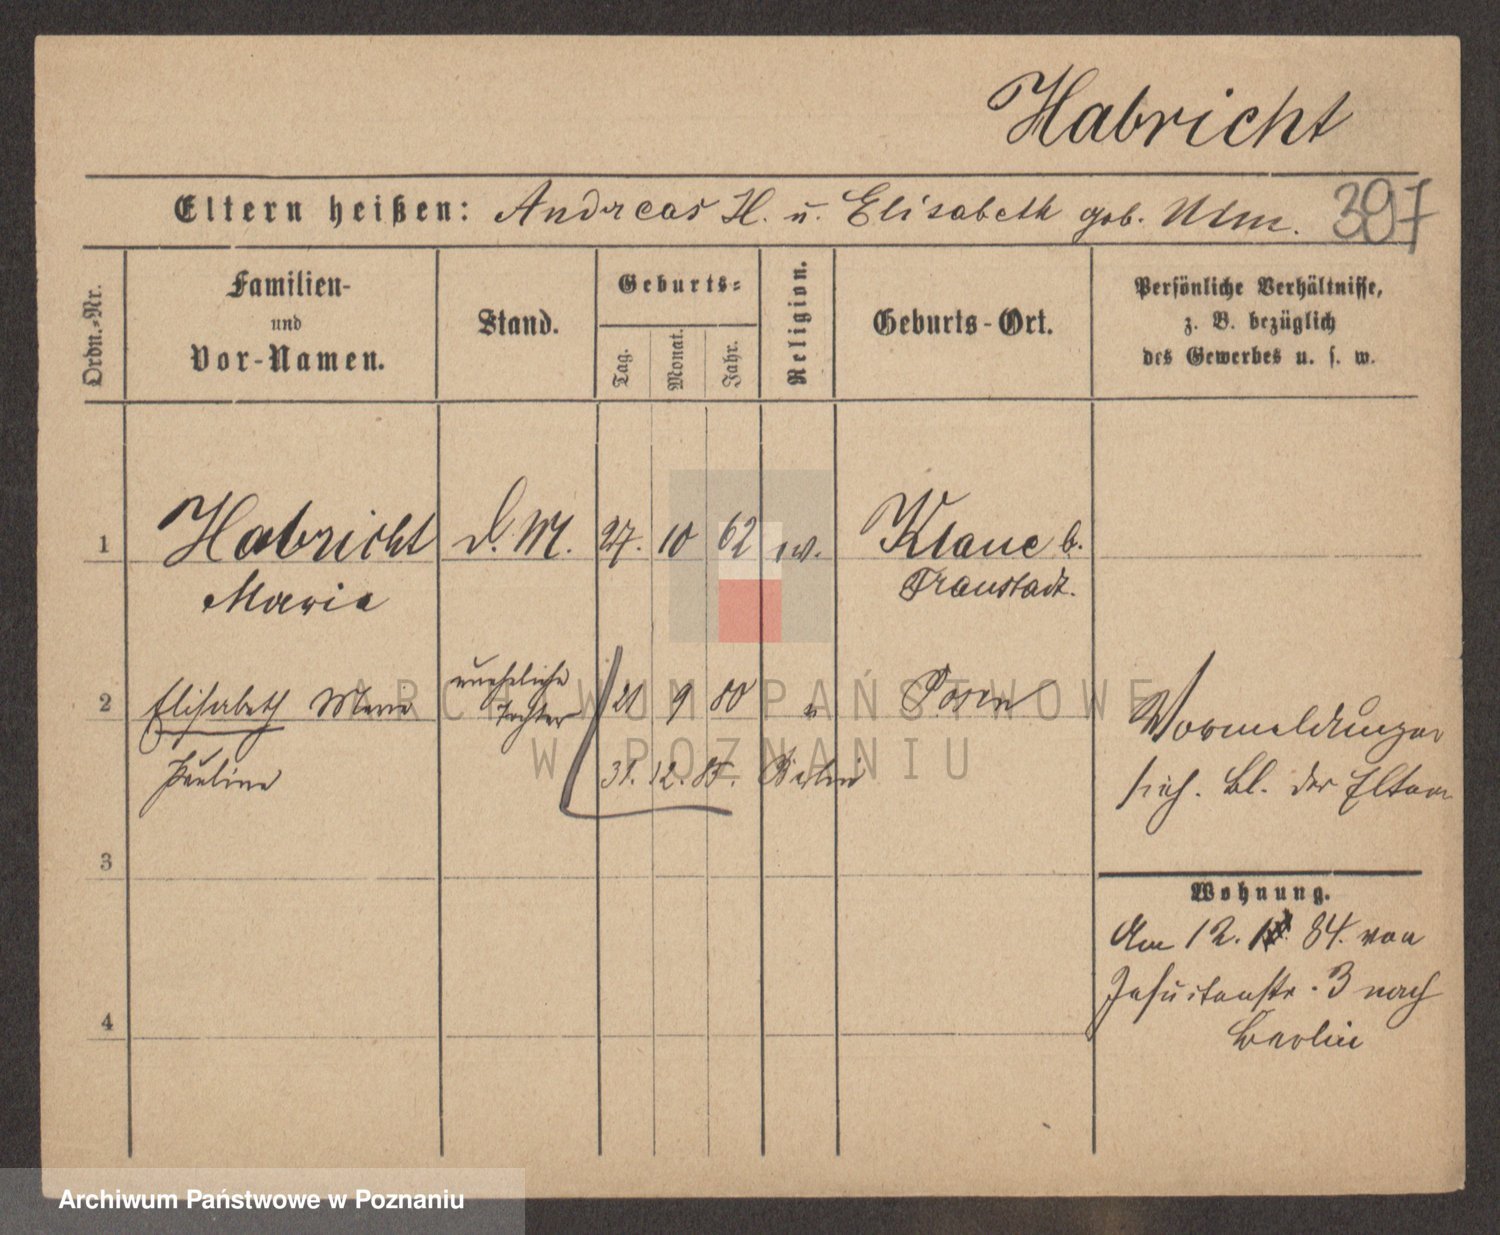 Habricht
Eltern heißen: Andreas H. u. Elisabeth geb. Ulm. 397
Ordn.-Nr.
Familien- und Vor-Namen.
Stand.
Geburts-
Tag.
Monat.
Jahr.
Religion.
Geburts-Ort.
Persönliche Verhältnisse,
z. B. bezüglich
des Gewerbes u. s. w.
1 Habricht D. M. 27. 10 62 ev. b.
Maria Fraustadt.
2 Elisabeth Maria uneheliche Tochter 21 9 80 " Posen
Pauline 31. 12. Berlin
Vormeldungen
sieh. Bl. der Eltern
3
Wohnung.
Am 12. 84. von
Jesuitenstr. 3 nach
Berlin
4
ARCHIWUM PAŃSTWOWE
W POZNANIU
Archiwum Państwowe w Poznaniu